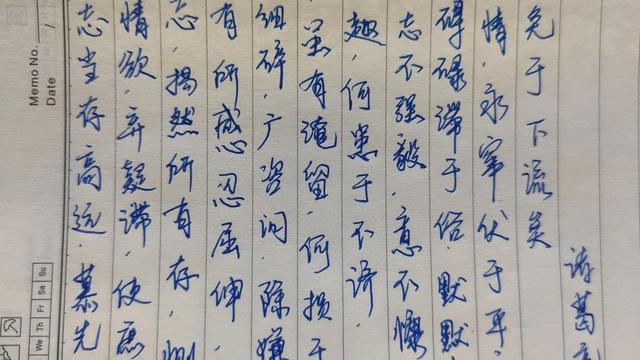 Memo No.
Date / /
We Th Fr Sa Su
志当存高远.慕先
情欲.弃疑滞.使庶
志.揭然所有存.恻
有所感忍屈伸.
细碎.广咨问.除嫌
虽有淹留.何损于
趣.何患于不济.
志不强毅.意不慷
碌碌滞于俗.默默
情.永窜伏于平
免于下流矣
诸葛